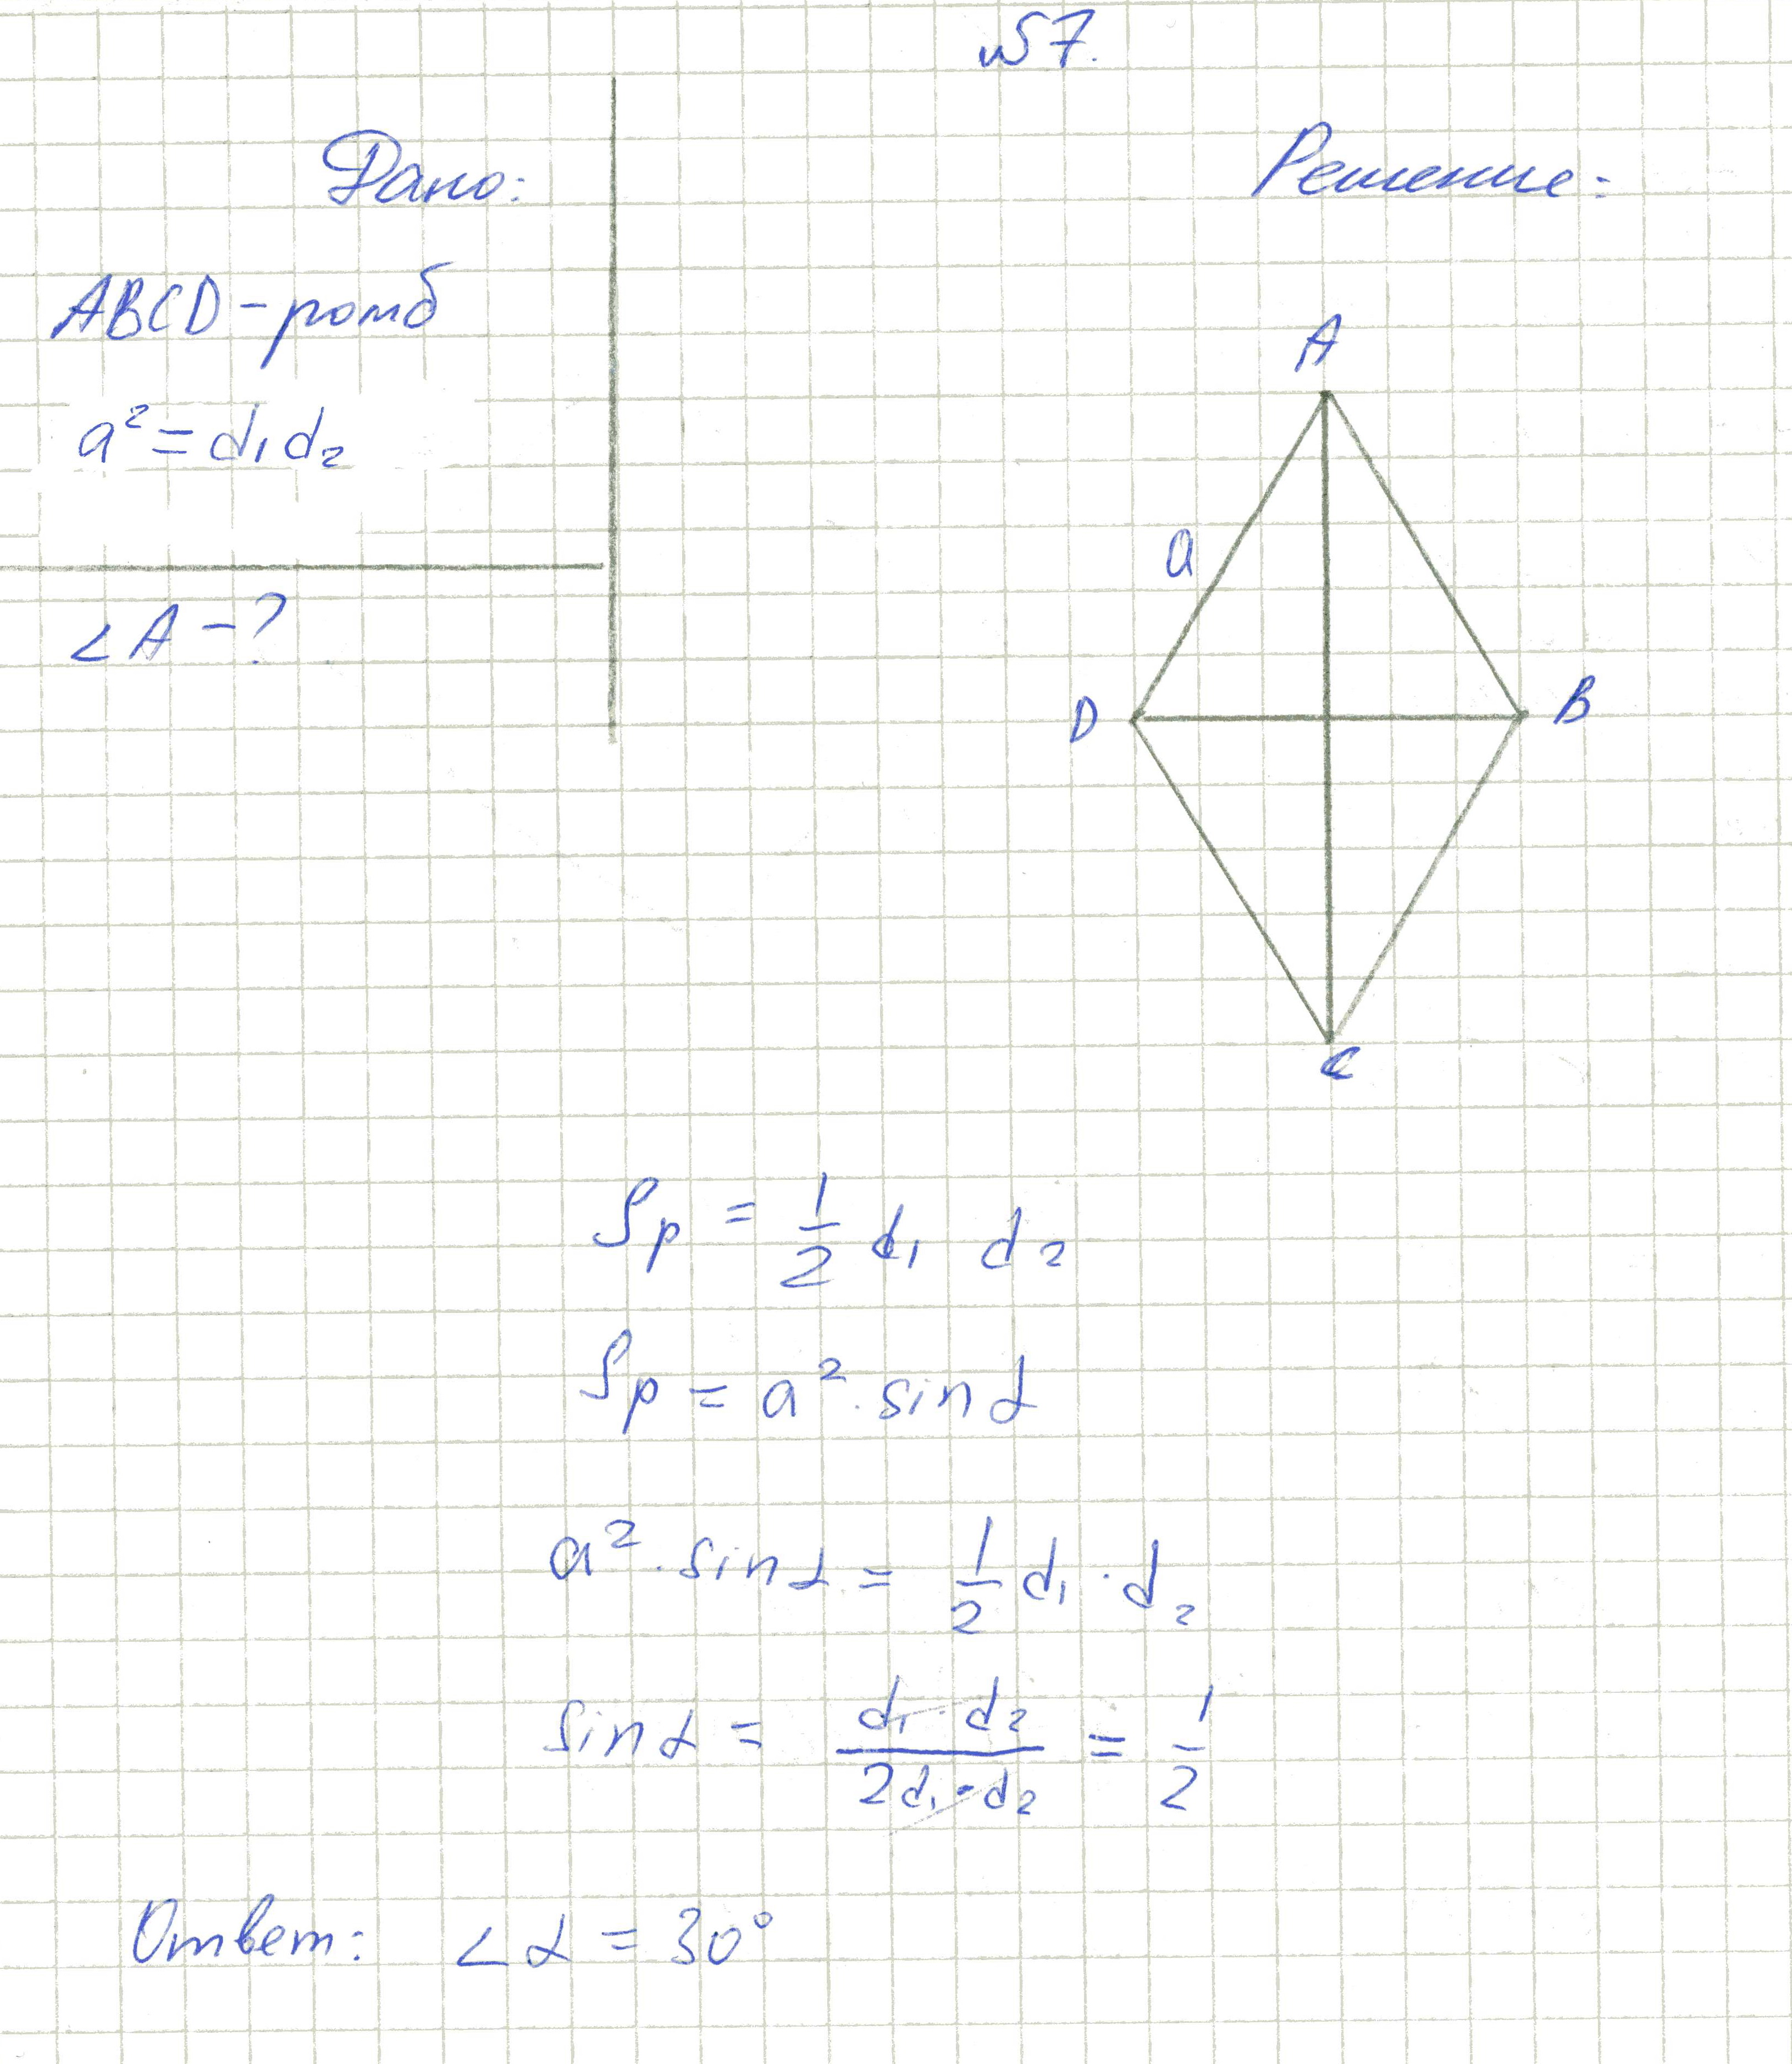 №7.
Дано:
Решение:
ABCD - ромб
a² = d₁d₂
∠A - ?
A
a
D
B
C
Sр = 1/2 d₁ d₂
Sр = a² · sin α
a² · sin α = 1/2 d₁ · d₂
sin α = d₁ · d₂ / 2d₁ · d₂ = 1/2
Ответ: ∠α = 30°